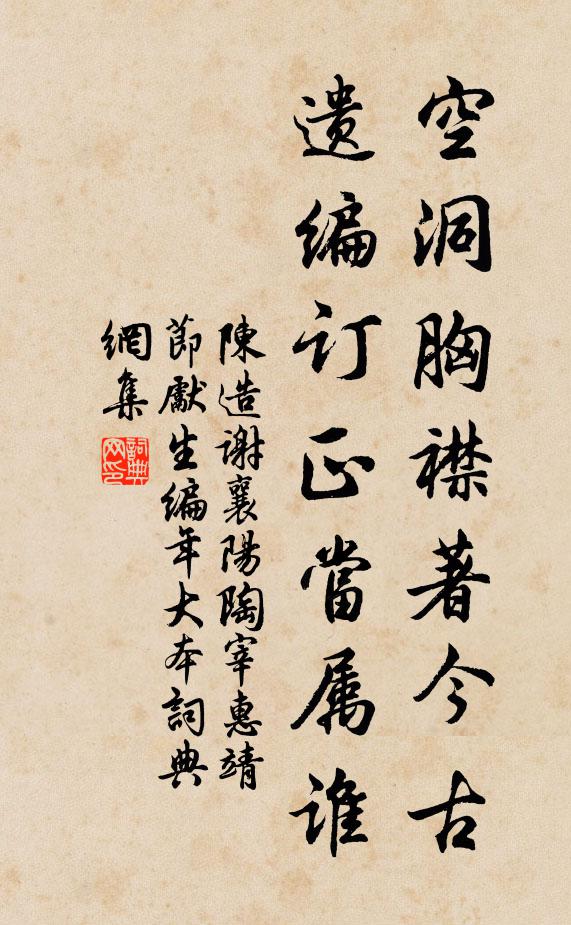 空洞胸襟著今古
遗编订正當属谁
陳造谢襄陽陶宰惠靖
節獻生编年大本詞典
網集
詞典网印